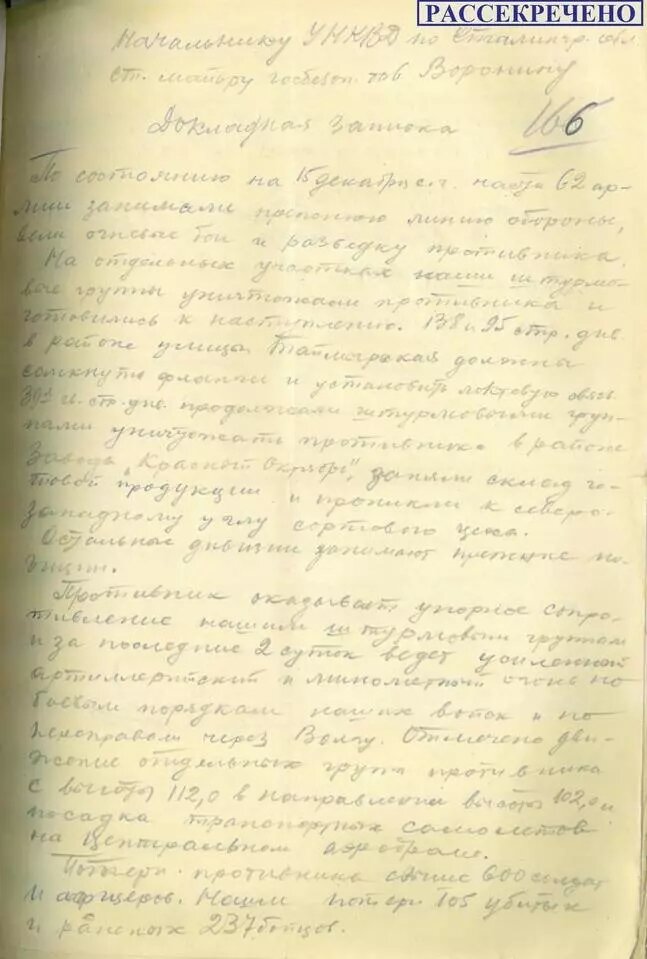 РАССЕКРЕЧЕНО
Начальнику УНКВД по Сталингр. обл.
ст. майору госбезоп. тов Воронину
Докладная записка
166
По состоянию на 15 декабря с.г. части 62 ар-
мии занимали прежнюю линию обороны,
вели огневые бои и разведку противника.
На отдельных участках наши штурмо-
вые группы уничтожали противника и
готовились к наступлению. 138 и 95 стр. див.
в районе улицы Таймырская должны
сомкнуть фланги и установить локтевую связь
39я г. стр. див. продолжали штурмовыми груп-
пами уничтожать противника в районе
завода „Красный Октябрь", заняли склад го-
товой продукции и проникли к северо-
западному углу сортового цеха.
Остальные дивизии занимают прежние по-
зиции.
Противник оказывает упорное сопро-
тивление нашим штурмовым группам
и за последние 2 суток ведет усиленный
артиллерийский и минометный огонь по
боевым порядкам наших войск и по
переправам через Волгу. Отмечено дви-
жение отдельных групп противника
с высоты 112,0 в направлении высоты 102,0 и
посадка транспортных самолетов
на центральном аэродроме.
Потери противника свыше 600 солдат
и офицеров. Наши потери 105 убитых
и раненых 237 бойцов.